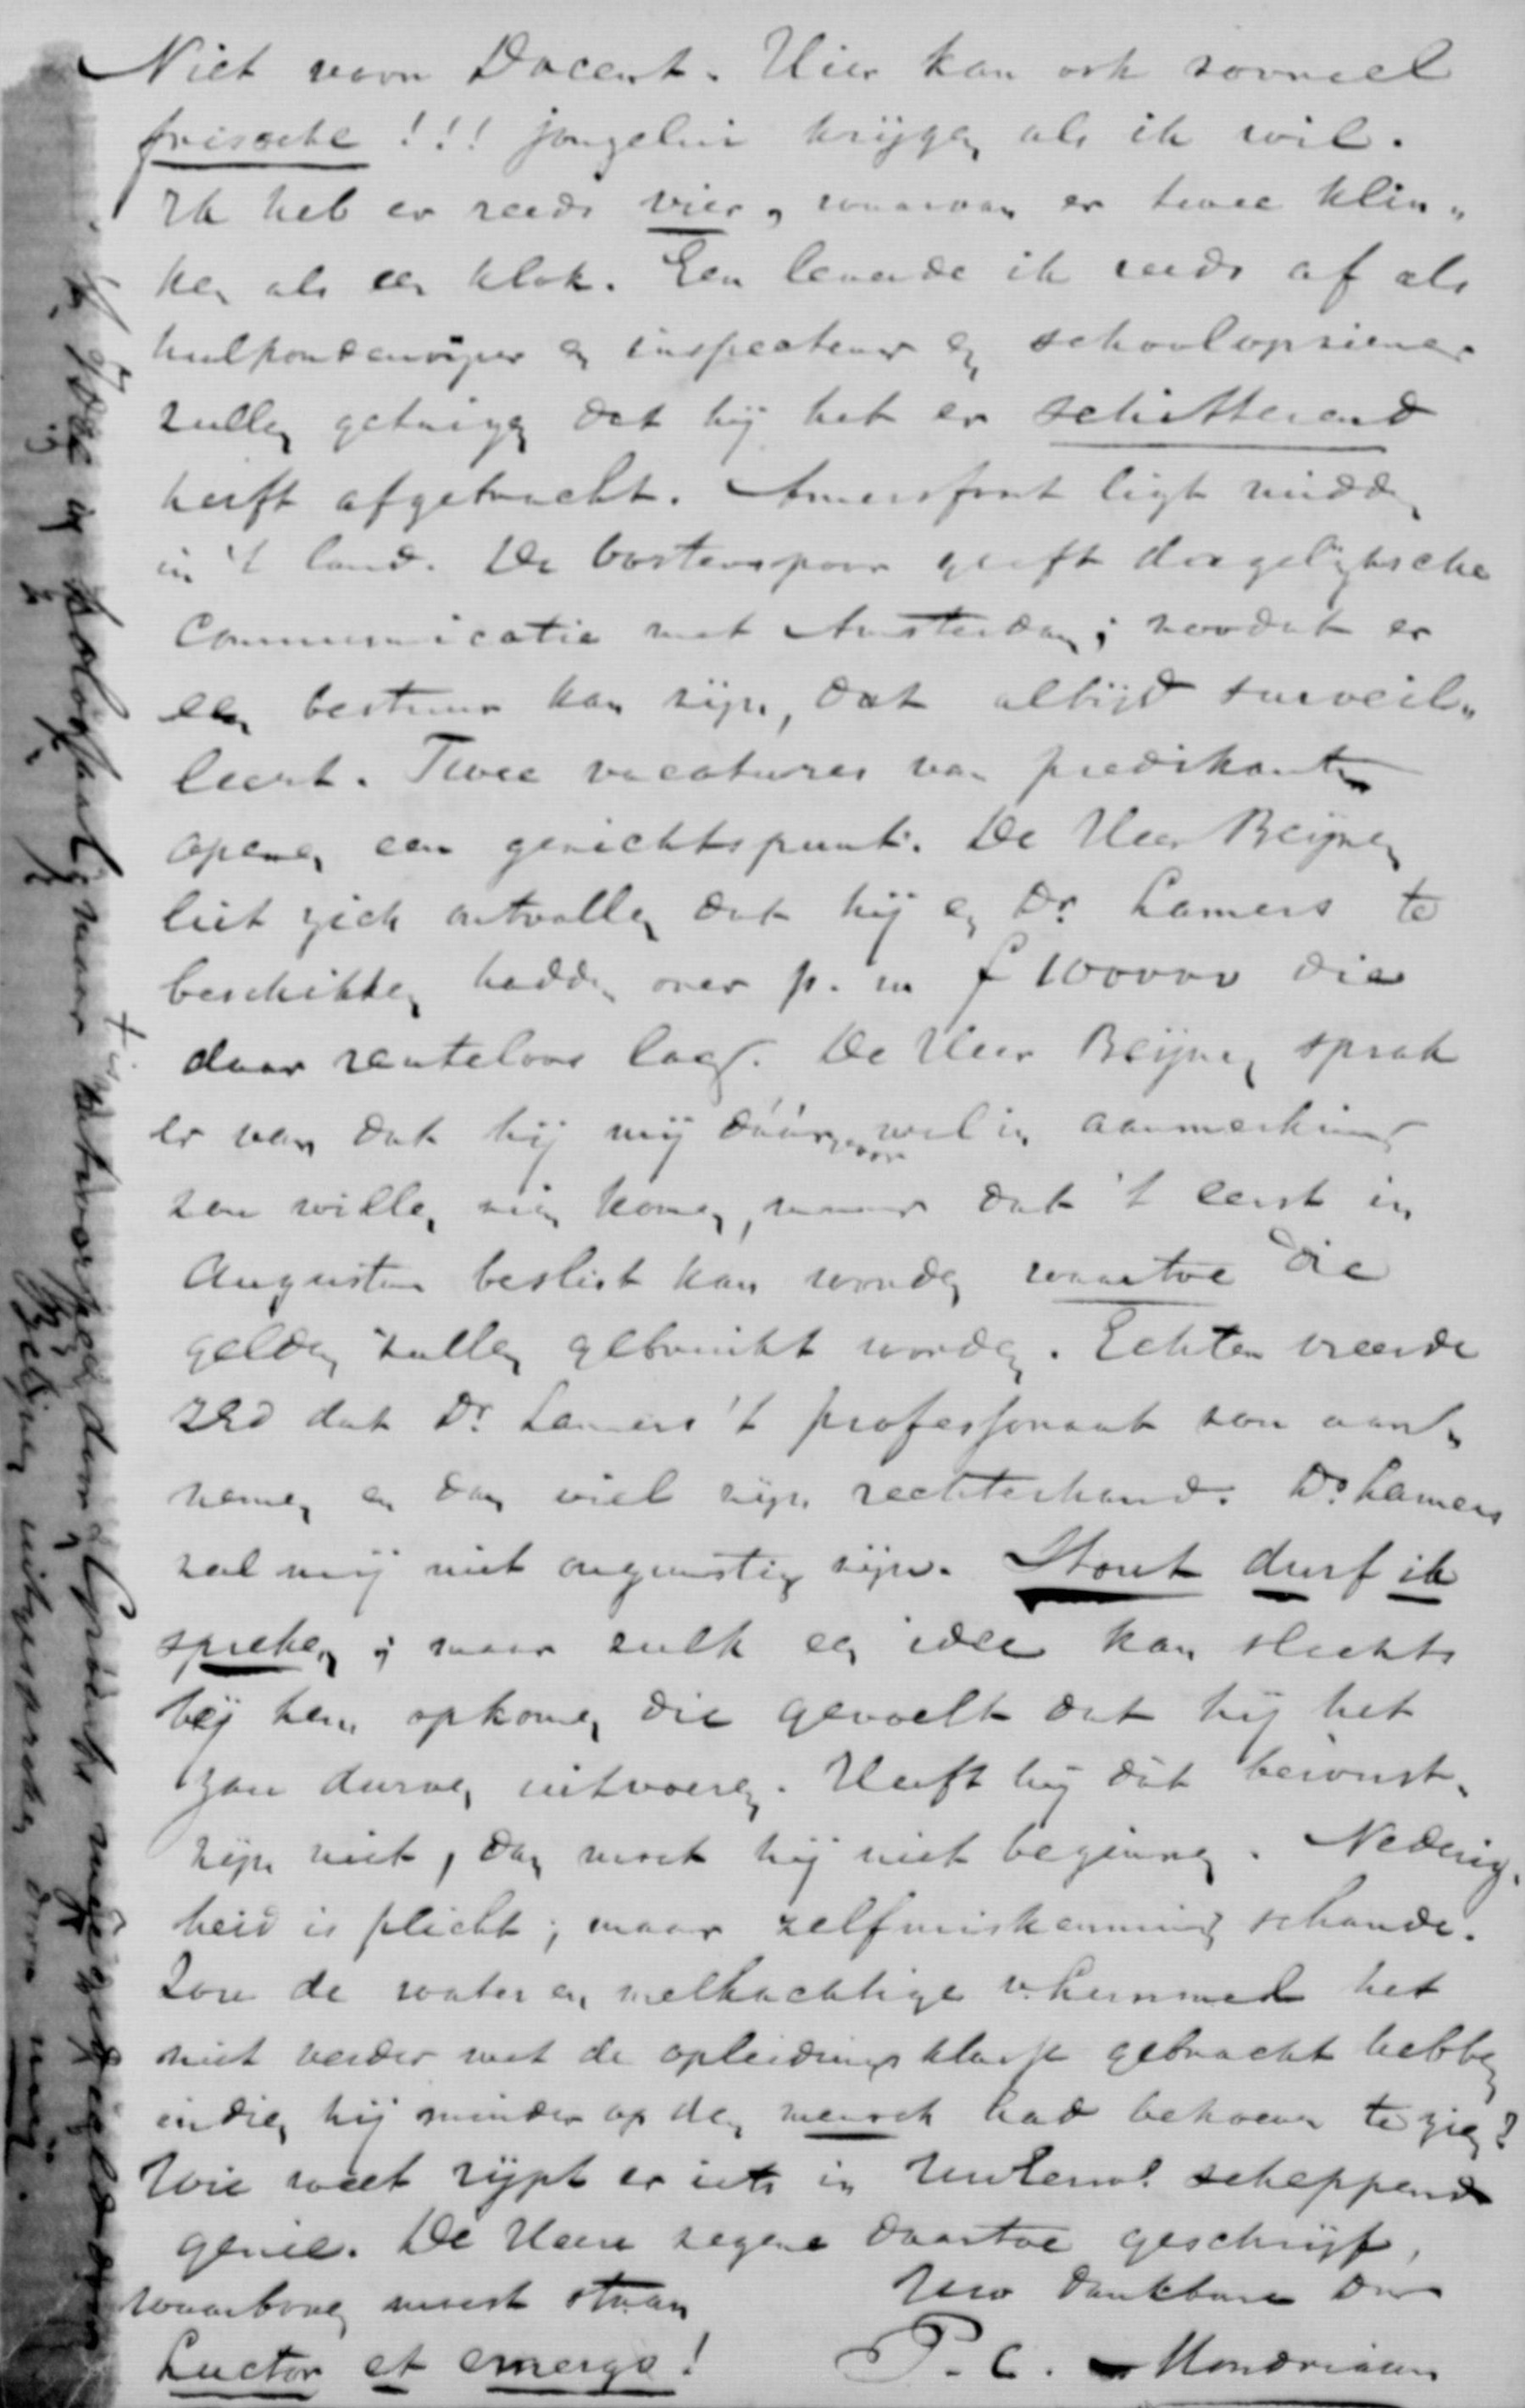 Niet voor Docent. Hier kan ook zooveel
frissche!!! jongelui krijgen als ik wil.
Ik heb er reeds vier, waarvan er twee klin„
ken als een klok. Een leverde ik reeds af als
hulponderwijzer en inspecteur en schoolopziener
zullen getuigen dat hij het er schitterend
heeft afgebracht. Amersfoort ligt midden
in 't land. De Oosterspoor geeft dagelijksche
Communicatie met Amsterdam; zoodat er
een bestuur kan zijn, dat altijd surveil„
leert. Twee vacatures van predikanten
openen een gezichtspunt. De Heer Beijnen
liet zich ontvallen dat hij en Dr. Lamers te
beschikken hadden over p. m f 100000 die
daar renteloos lag. De Heer Beijnen sprak
er van dat hij mij dáárvoor wel in aanmerking
zou willen zien komen, maar dat 't eerst in
Augustus beslist kan worden waartoe die
gelden zullen gebruikt worden. Echter vreesde
ZEd dat Dr. Lamers 't professoraat zou aan„
nemen en dan viel zijn rechterhand. Dr. Lamers
zal mij niet ongunstig zijn. Stout durf ik
spreken; maar zulk een idee kan slechts
bij hem opkomen die gevoelt dat hij het
zou durven uitvoeren. Heeft hij dat bewust„
zijn niet, dan moet hij niet beginnen. Nederig„
heid is plicht; maar zelfmiskenning schande.
Zou de water en melkachtige v. Lummel het
niet verder met de opleidingsklasse gebracht hebben
indien hij minder op den mensch had behoeven te zien?
Wie weet rijpt er iets in UwEerw. scheppend
genie. De Heere zegene daartoe geschrijf,
waarboven moest staan Uw dankbare Dnr
Luctor et emergo! P. C. Mondriaan